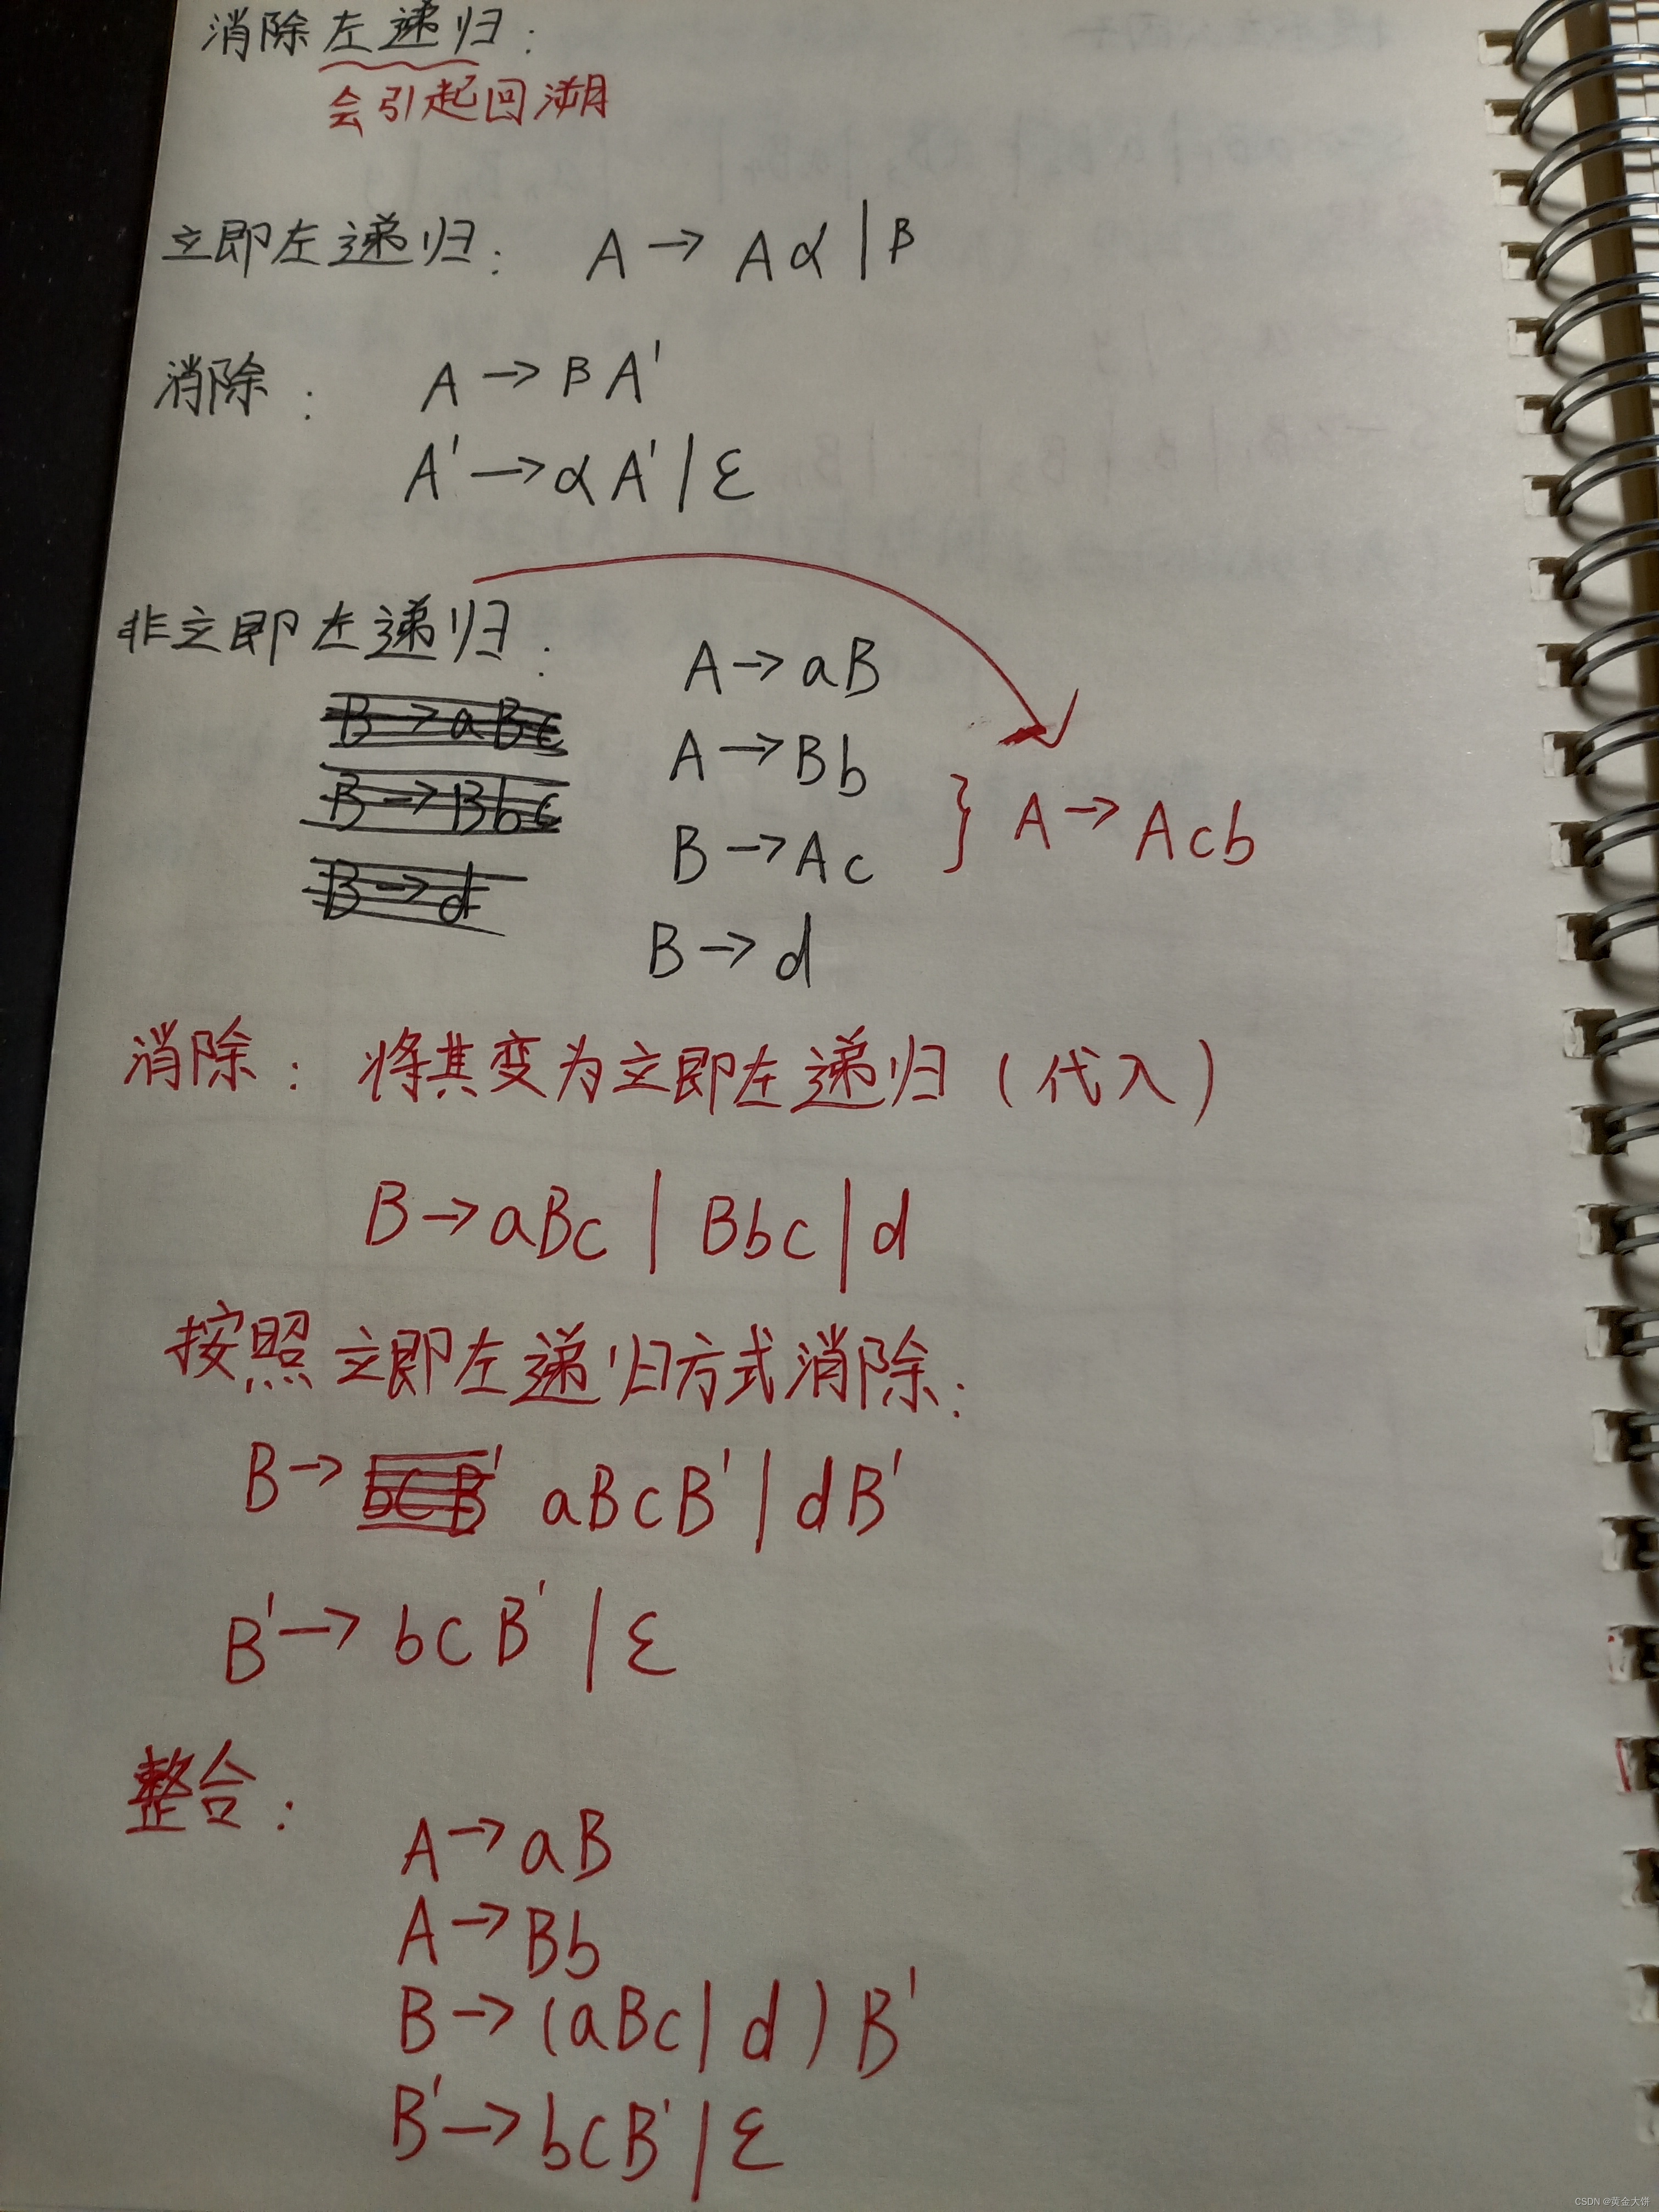 消除左递归：
会引起回溯
立即左递归： A → Aα | β
消除： A → βA'
A' → αA' | ε
非立即左递归： A → aB
B → aBc
A → Bb
B → Bbc
B → Ac } A → Acb
B → d
B → d
消除：将其变为立即左递归（代入）
B → aBc | Bbc | d
按照立即左递归方式消除：
B → bcB' aBcB' | dB'
B' → bcB' | ε
整合：
A → aB
A → Bb
B → (aBc | d) B'
B' → bcB' | ε
CSDN @黄金大饼